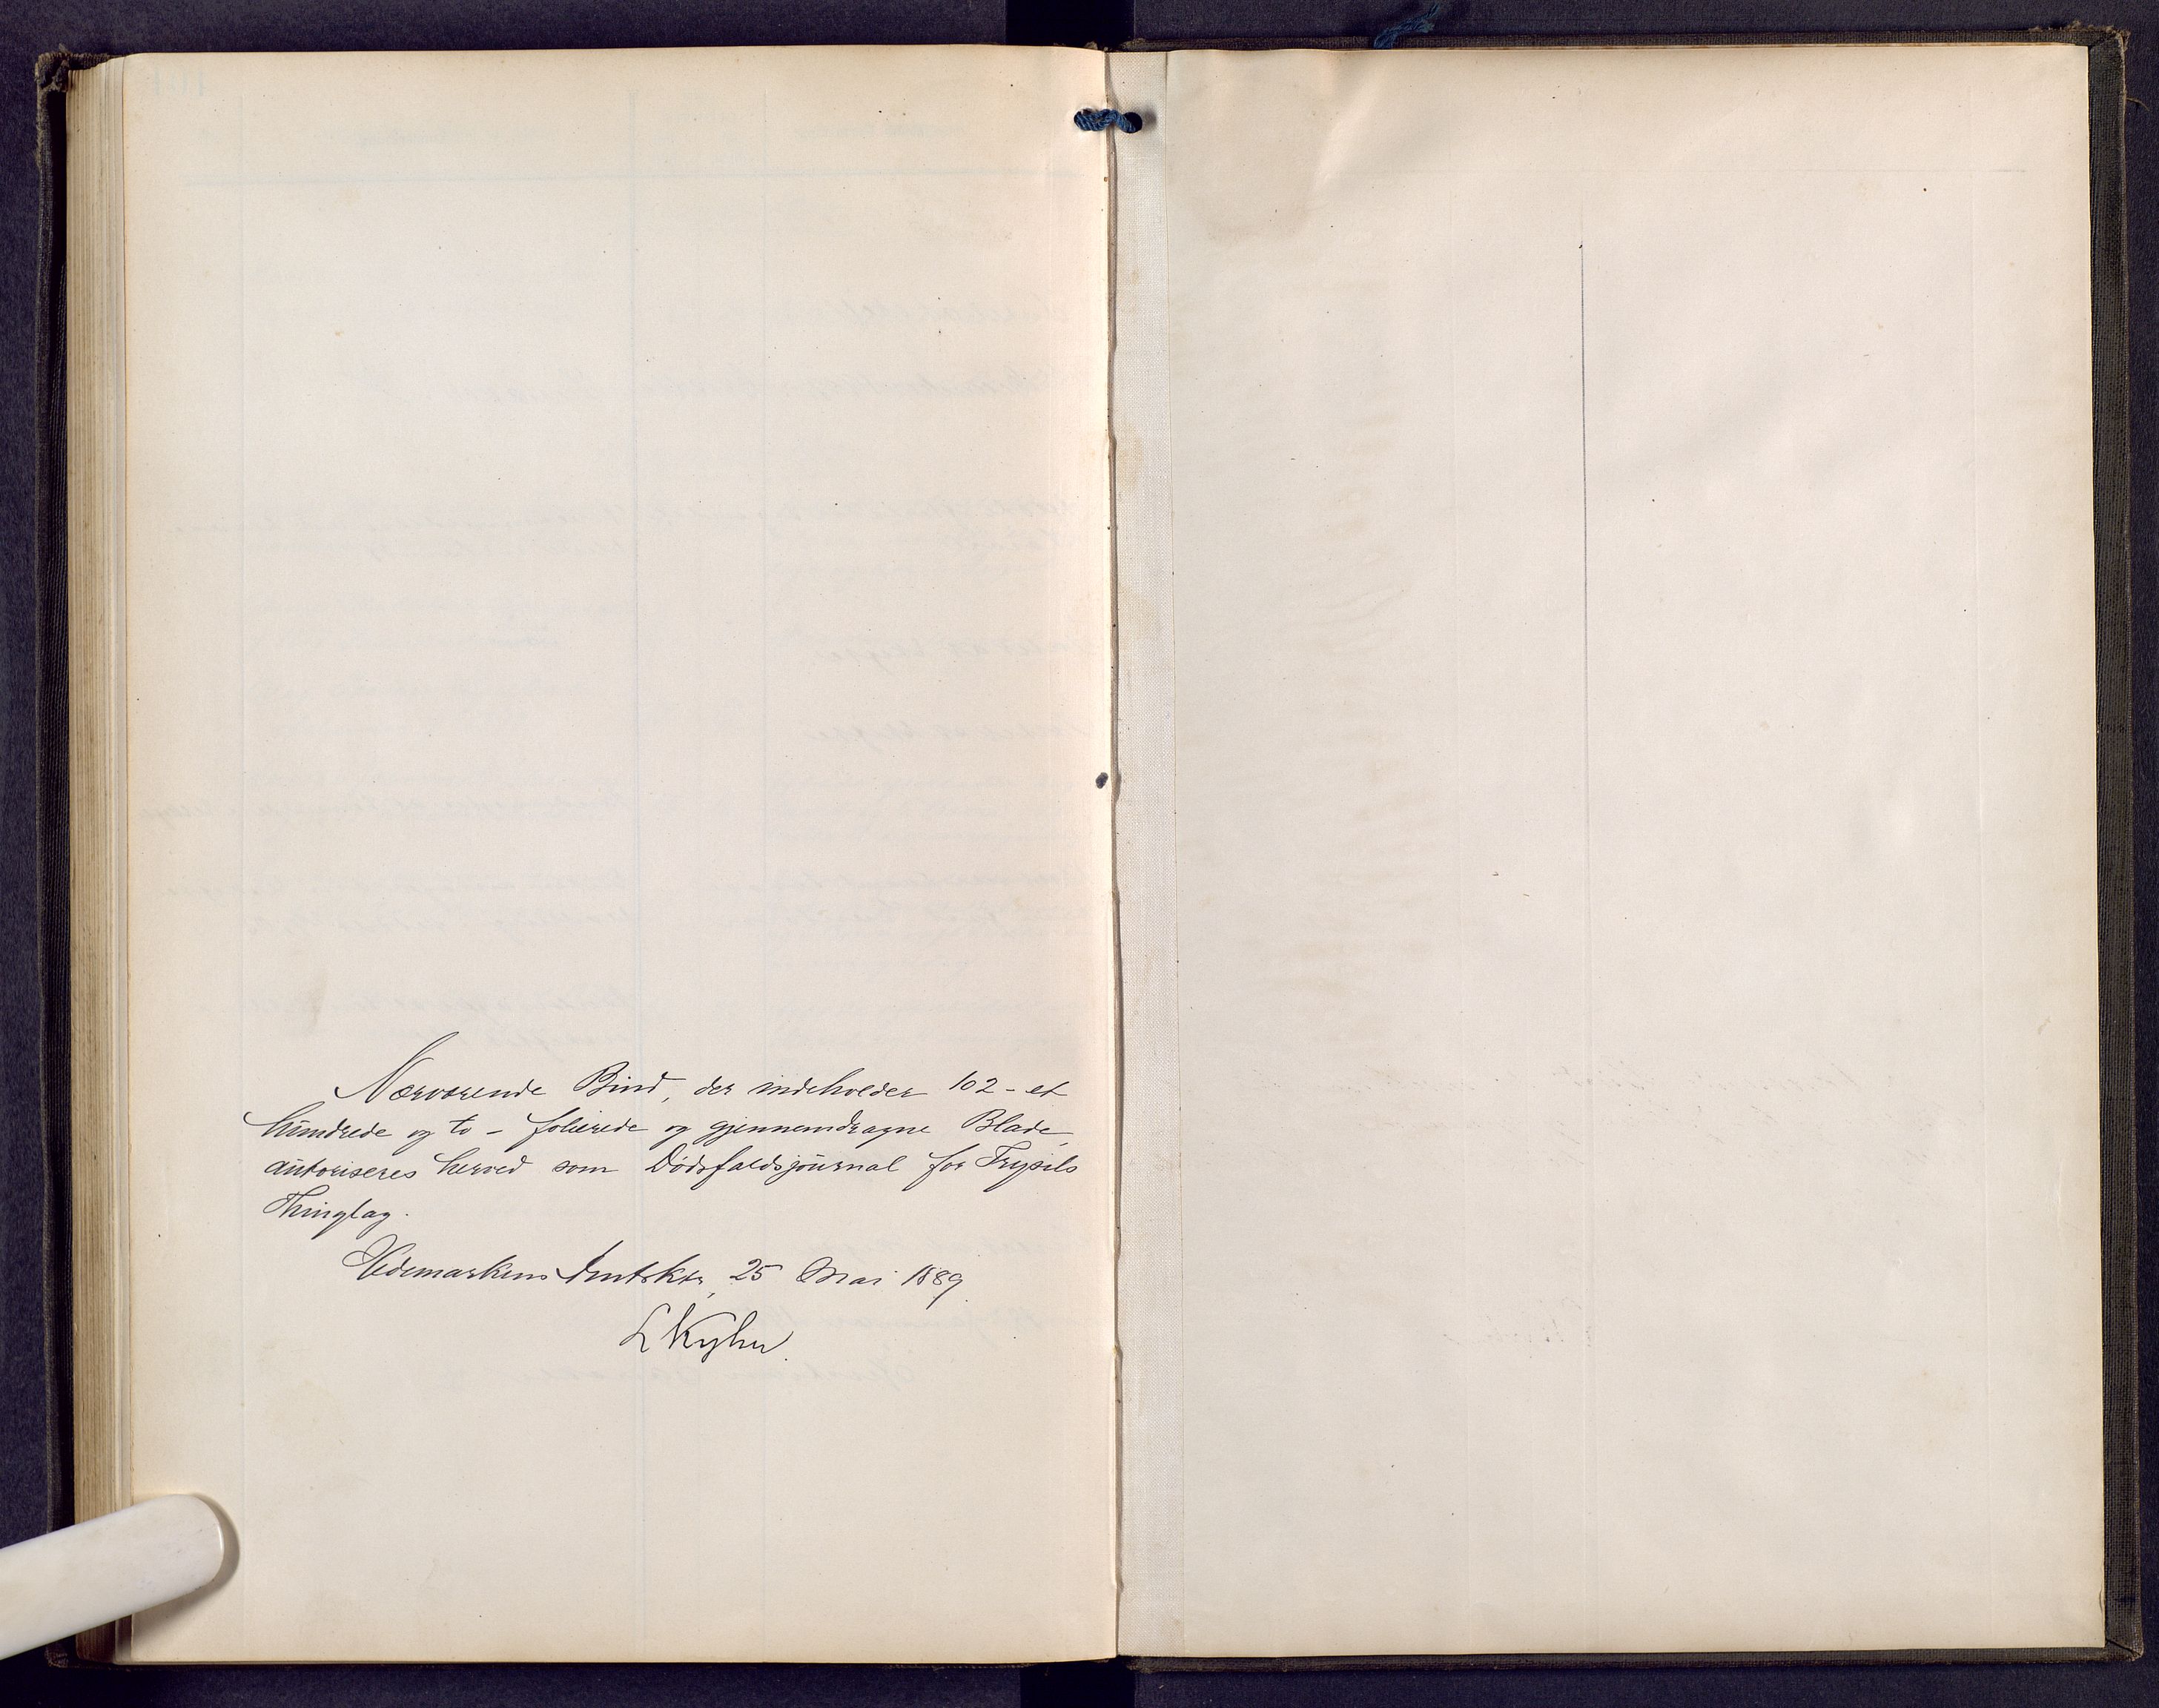 Nærværende Bind, der indeholder 102 - et
hundrede og to - folierede og gjennemdragne Blade,
autoriseres herved som Dødsfaldsjournal for Trysils
Thinglag.
Hedemarkens Amtskr, 25 Mai 1889
L Kyhn